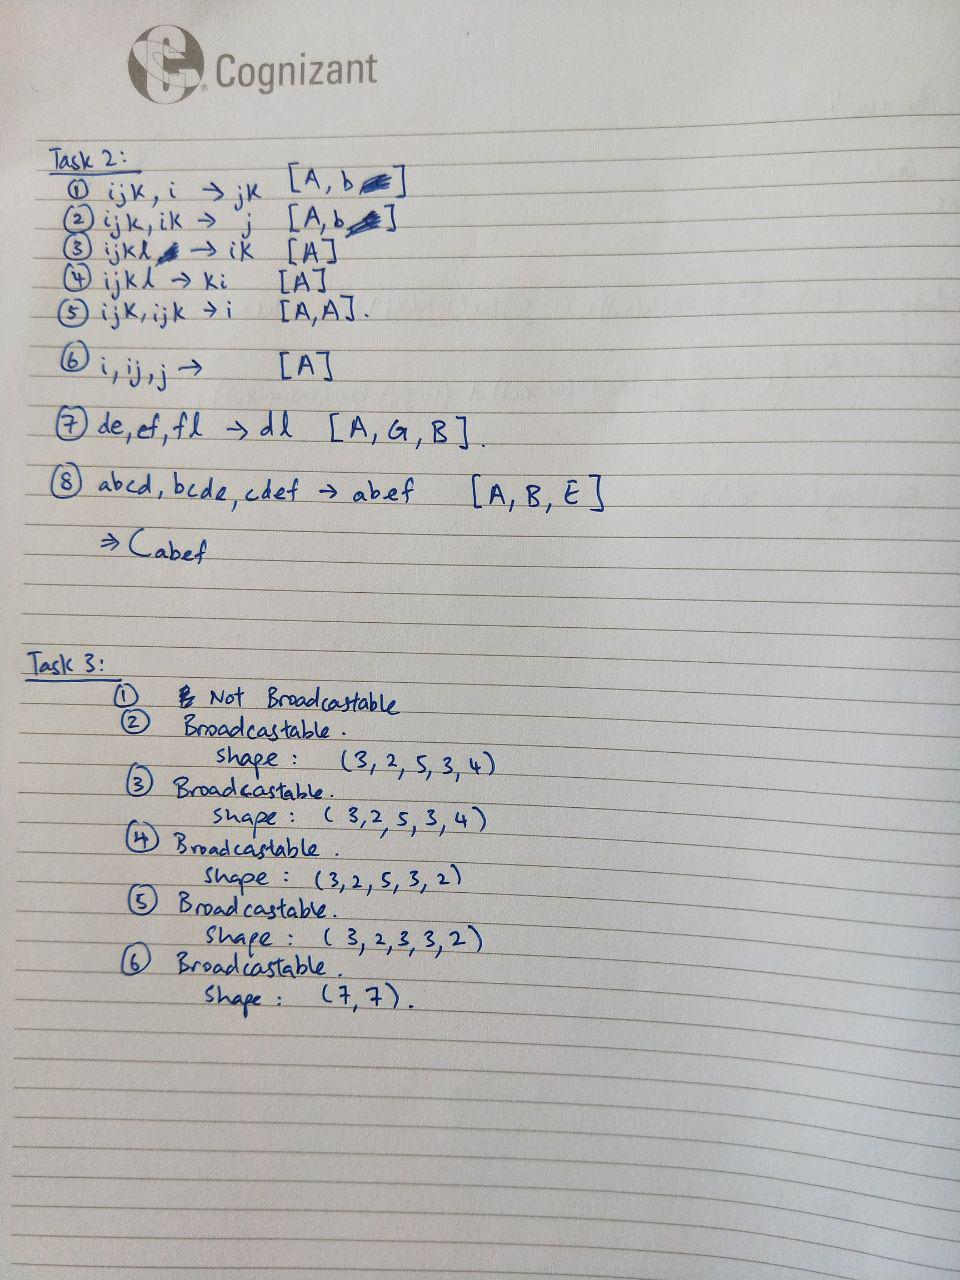 Cognizant
Task 2:
① ijk, i → jk [A, b]
② ijk, ik → j [A, b]
③ ijkl → ik [A]
④ ijkl → ki [A]
⑤ ijk, ijk → i [A, A].
⑥ i, ij, j → [A]
⑦ de, ef, fl → dl [A, G, B].
⑧ abcd, bcde, cdef → abef [A, B, E]
⇒ Cabef
Task 3:
① Not Broadcastable
② Broadcastable.
shape: (3, 2, 5, 3, 4)
③ Broadcastable.
shape: (3, 2, 5, 3, 4)
④ Broadcastable.
shape: (3, 2, 5, 3, 2)
⑤ Broadcastable.
shape: (3, 2, 3, 3, 2)
⑥ Broadcastable.
shape: (7, 7).